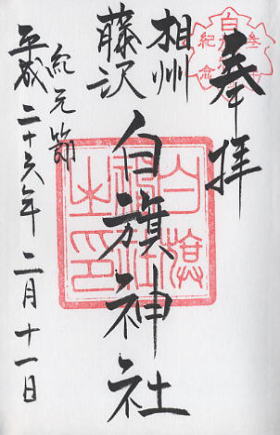 奉拝
相州
藤沢
白旗神社
紀元節
平成二十六年 二月十一日
白旗
神社
之印